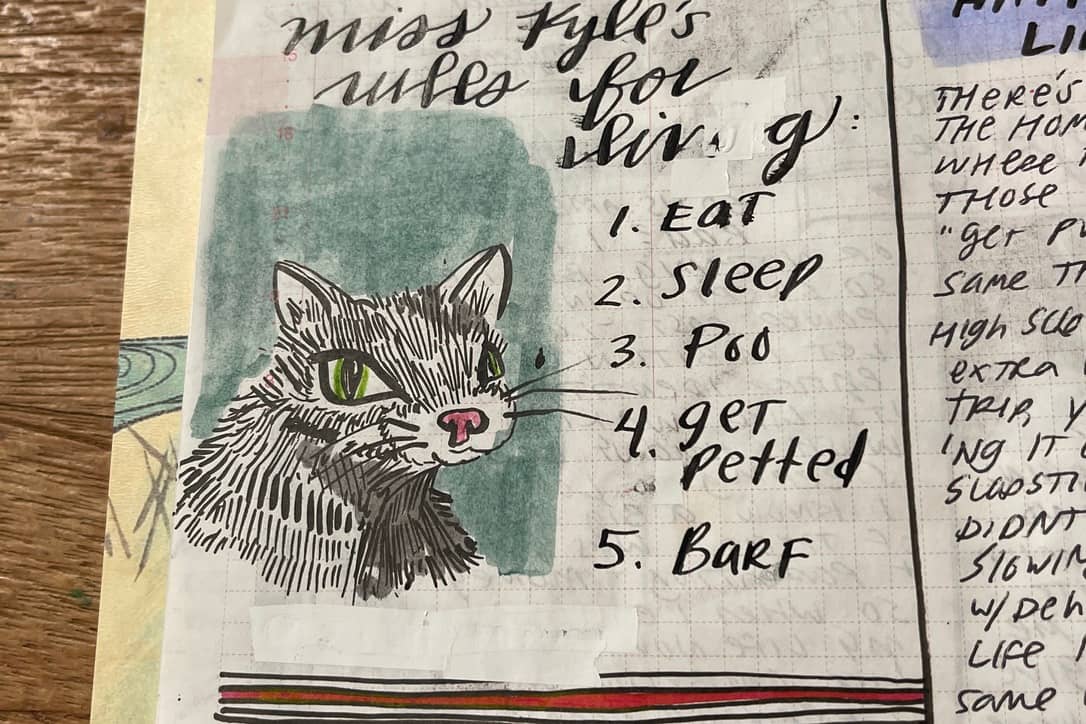 miss Kyle's
rules for
living:
1. EAT
2. Sleep
3. POO
4. get
petted
5. BARF
LI
THERE'S
THE HOM
WHERE
THOSE
"get PU
SAME TH
HIGH SCO
extra
TRIP, Y
ING IT
SLAPSTI
DIDNT
SLOWIN
W/ DEH
LIFE I
same
15
18
21